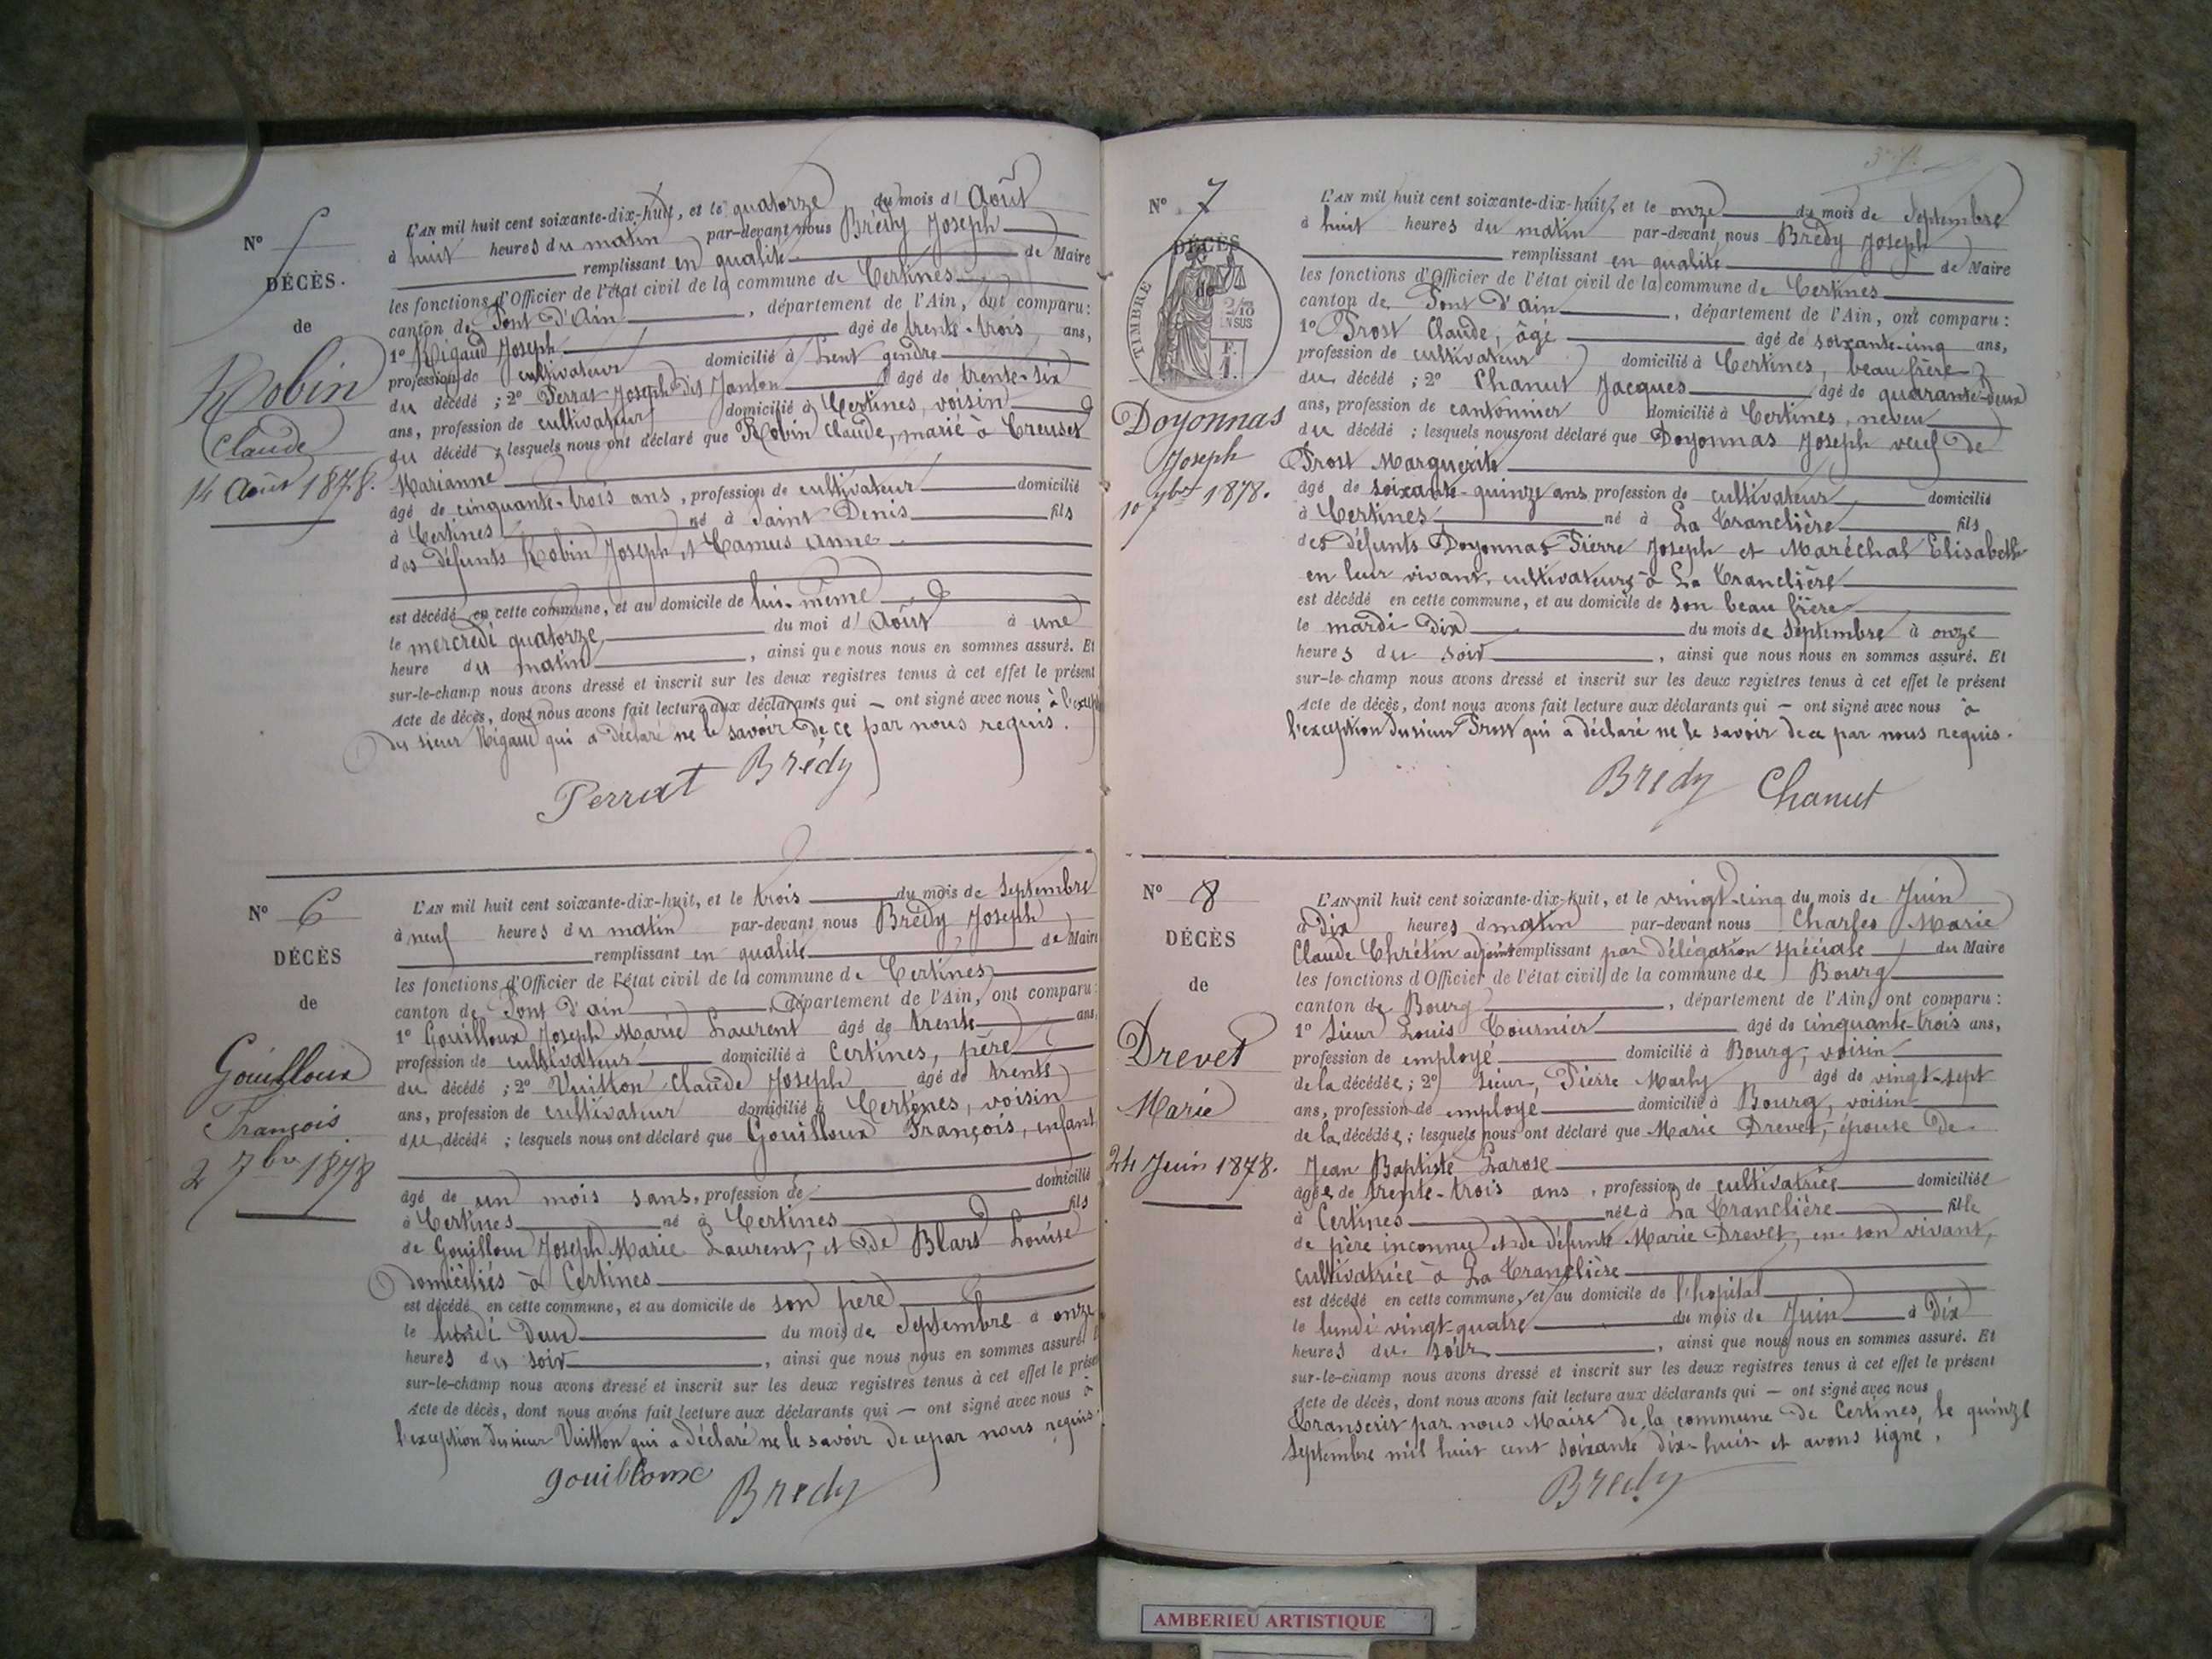 N° 5
DÉCÈS.
de
Robin
Claude
14 Août 1878.
L'AN mil huit cent soixante-dix-huit, et le quatorze du mois d' Août
à huit heures du matin par-devant nous Brédy Joseph
remplissant en qualité de Maire
les fonctions d'Officier de l'état civil de la commune de Certines
canton de Pont d'Ain, département de l'Ain, ont comparu:
1° Rigaud Joseph âgé de trente-trois ans,
profession de cultivateur domicilié à Lent gendre
du décédé ; 2° Perrat Joseph dit Janton âgé de trente-six
ans, profession de cultivateur domicilié à Certines, voisin
du décédé ; lesquels nous ont déclaré que Robin Claude, marié à Creuset
Marianne
âgé de cinquante-trois ans, profession de cultivateur domicilié
à Certines né à Saint Denis fils
des défunts Robin Joseph et Camus Anne
est décédé en cette commune, et au domicile de lui-même
le mercredi quatorze du moi d' Août à une
heure du matin, ainsi que nous nous en sommes assuré. Et
sur-le-champ nous avons dressé et inscrit sur les deux registres tenus à cet effet le présent
Acte de décès, dont nous avons fait lecture aux déclarants qui — ont signé avec nous à
du sieur Rigaud qui a déclaré ne le savoir de ce par nous requis.
Perrat Brédy
N° 6
DÉCÈS
de
Gouilloux
François
2 7bre 1878
L'AN mil huit cent soixante-dix-huit, et le trois du mois de Septembre
à neuf heures du matin par-devant nous Brédy Joseph
remplissant en qualité de Maire
les fonctions d'Officier de l'état civil de la commune de Certines
canton de Pont d'ain, département de l'Ain, ont comparu:
1° Gouilloux Joseph Marie Laurent âgé de trente ans,
profession de cultivateur domicilié à Certines, père
du décédé ; 2° Vuitton Claude Joseph âgé de trente
ans, profession de cultivateur domicilié à Certines, voisin
du décédé ; lesquels nous ont déclaré que Gouilloux François, enfant
domicilié
âgé de un mois sans, profession de
à Certines né à Certines fils
de Gouilloux Joseph Marie Laurent, et de Blard Louise
domiciliés à Certines
est décédé en cette commune, et au domicile de son père
le lundi deux du mois de Septembre à onze
heures du soir, ainsi que nous nous en sommes assuré
sur-le-champ nous avons dressé et inscrit sur les deux registres tenus à cet effet le présent
Acte de décès, dont nous avons fait lecture aux déclarants qui — ont signé avec nous à
l'exception du sieur Vuitton qui a déclaré ne le savoir de ce par nous requis.
gouilloux Bredy
N° 7
DÉCÈS
de
TIMBRE
Doyonnas
Joseph
10 7bre 1878.
L'AN mil huit cent soixante-dix-huit, et le onze du mois de Septembre
à huit heures du matin par-devant nous Brédy Joseph
remplissant en qualité de Maire
les fonctions d'Officier de l'état civil de la commune de Certines
canton de Pont d'ain, département de l'Ain, ont comparu :
1° Prost Claude, âgé âgé de soixante-cinq ans,
profession de cultivateur domicilié à Certines, beau frère
du décédé ; 2° Chanut Jacques âgé de quarante-deux
ans, profession de cantonnier domicilié à Certines, neveu
du décédé ; lesquels nous ont déclaré que Doyonnas Joseph veuf de
Prost Marguerite
âgé de soixante-quinze ans profession de cultivateur domicilié
à Certines né à La Tranclière fils
des défunts Doyonnas Pierre Joseph et Maréchal Elisabeth
en leur vivant, cultivateurs à La Tranclière
est décédé en cette commune, et au domicile de son beau frère
le mardi dix du mois de Septembre à onze
heures du soir, ainsi que nous nous en sommes assuré. Et
sur-le-champ nous avons dressé et inscrit sur les deux registres tenus à cet effet le présent
Acte de décès, dont nous avons fait lecture aux déclarants qui — ont signé avec nous à
l'exception du sieur Prost qui a déclaré ne le savoir de ce par nous requis.
Bredy Chanut
N° 8
DÉCÈS
de
Drevet
Marie
24 Juin 1878.
L'AN mil huit cent soixante-dix-huit, et le vingt-cinq du mois de Juin
à dix heures d matin par-devant nous Charles Marie
Claude Chrétin adjoint remplissant par délégation spéciale du Maire
les fonctions d'Officier de l'état civil de la commune de Bourg
canton de Bourg, département de l'Ain, ont comparu :
1° Sieur Louis Tournier âgé de cinquante-trois ans,
profession de employé domicilié à Bourg, voisin
de la décédée ; 2° Sieur, Pierre Marly âgé de vingt-sept
ans, profession de employé domicilié à Bourg, voisin
de la décédée ; lesquels nous ont déclaré que Marie Drevet, épouse de
Jean Baptiste Larose
âgée de trente-trois ans, profession de cultivatrice domiciliée
à Certines née à La Tranclière fille
de père inconnu et de défunte Marie Drevet, en son vivant,
cultivatrice à La Tranclière
est décédé en cette commune, et au domicile de l'hopital
le lundi vingt-quatre du mois de Juin à dix
heures du soir, ainsi que nous nous en sommes assuré. Et
sur-le-champ nous avons dressé et inscrit sur les deux registres tenus à cet effet le présent
Acte de décès, dont nous avons fait lecture aux déclarants qui — ont signé avec nous
Transcrit par nous Maire de la commune de Certines, le quinze
Septembre mil huit cent soixante dix-huit et avons signé.
Bredy
AMBERIEU ARTISTIQUE